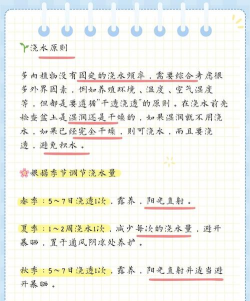 浇水原则
多肉植物没有固定的浇水频率，需要综合考虑很
多外界因素，例如养殖环境、温度、空气湿度
等，但都是要遵循"干透浇透"的原则。在浇水前先
检查盆土是湿润还是干燥的，如果湿润就不用浇
水，如果已经完全干燥，则可浇水，而且要浇
透，避免积水。
根据季节调节浇水量
春季：5~7日浇透1次，露养，阳光直射。
夏季：1~2周浇水1次，减少每次的浇水量，避开
暴晒，置于通风阴凉处养护。
秋季：5~7日浇透1次，露养，阳光直射并适当避
开暴晒。